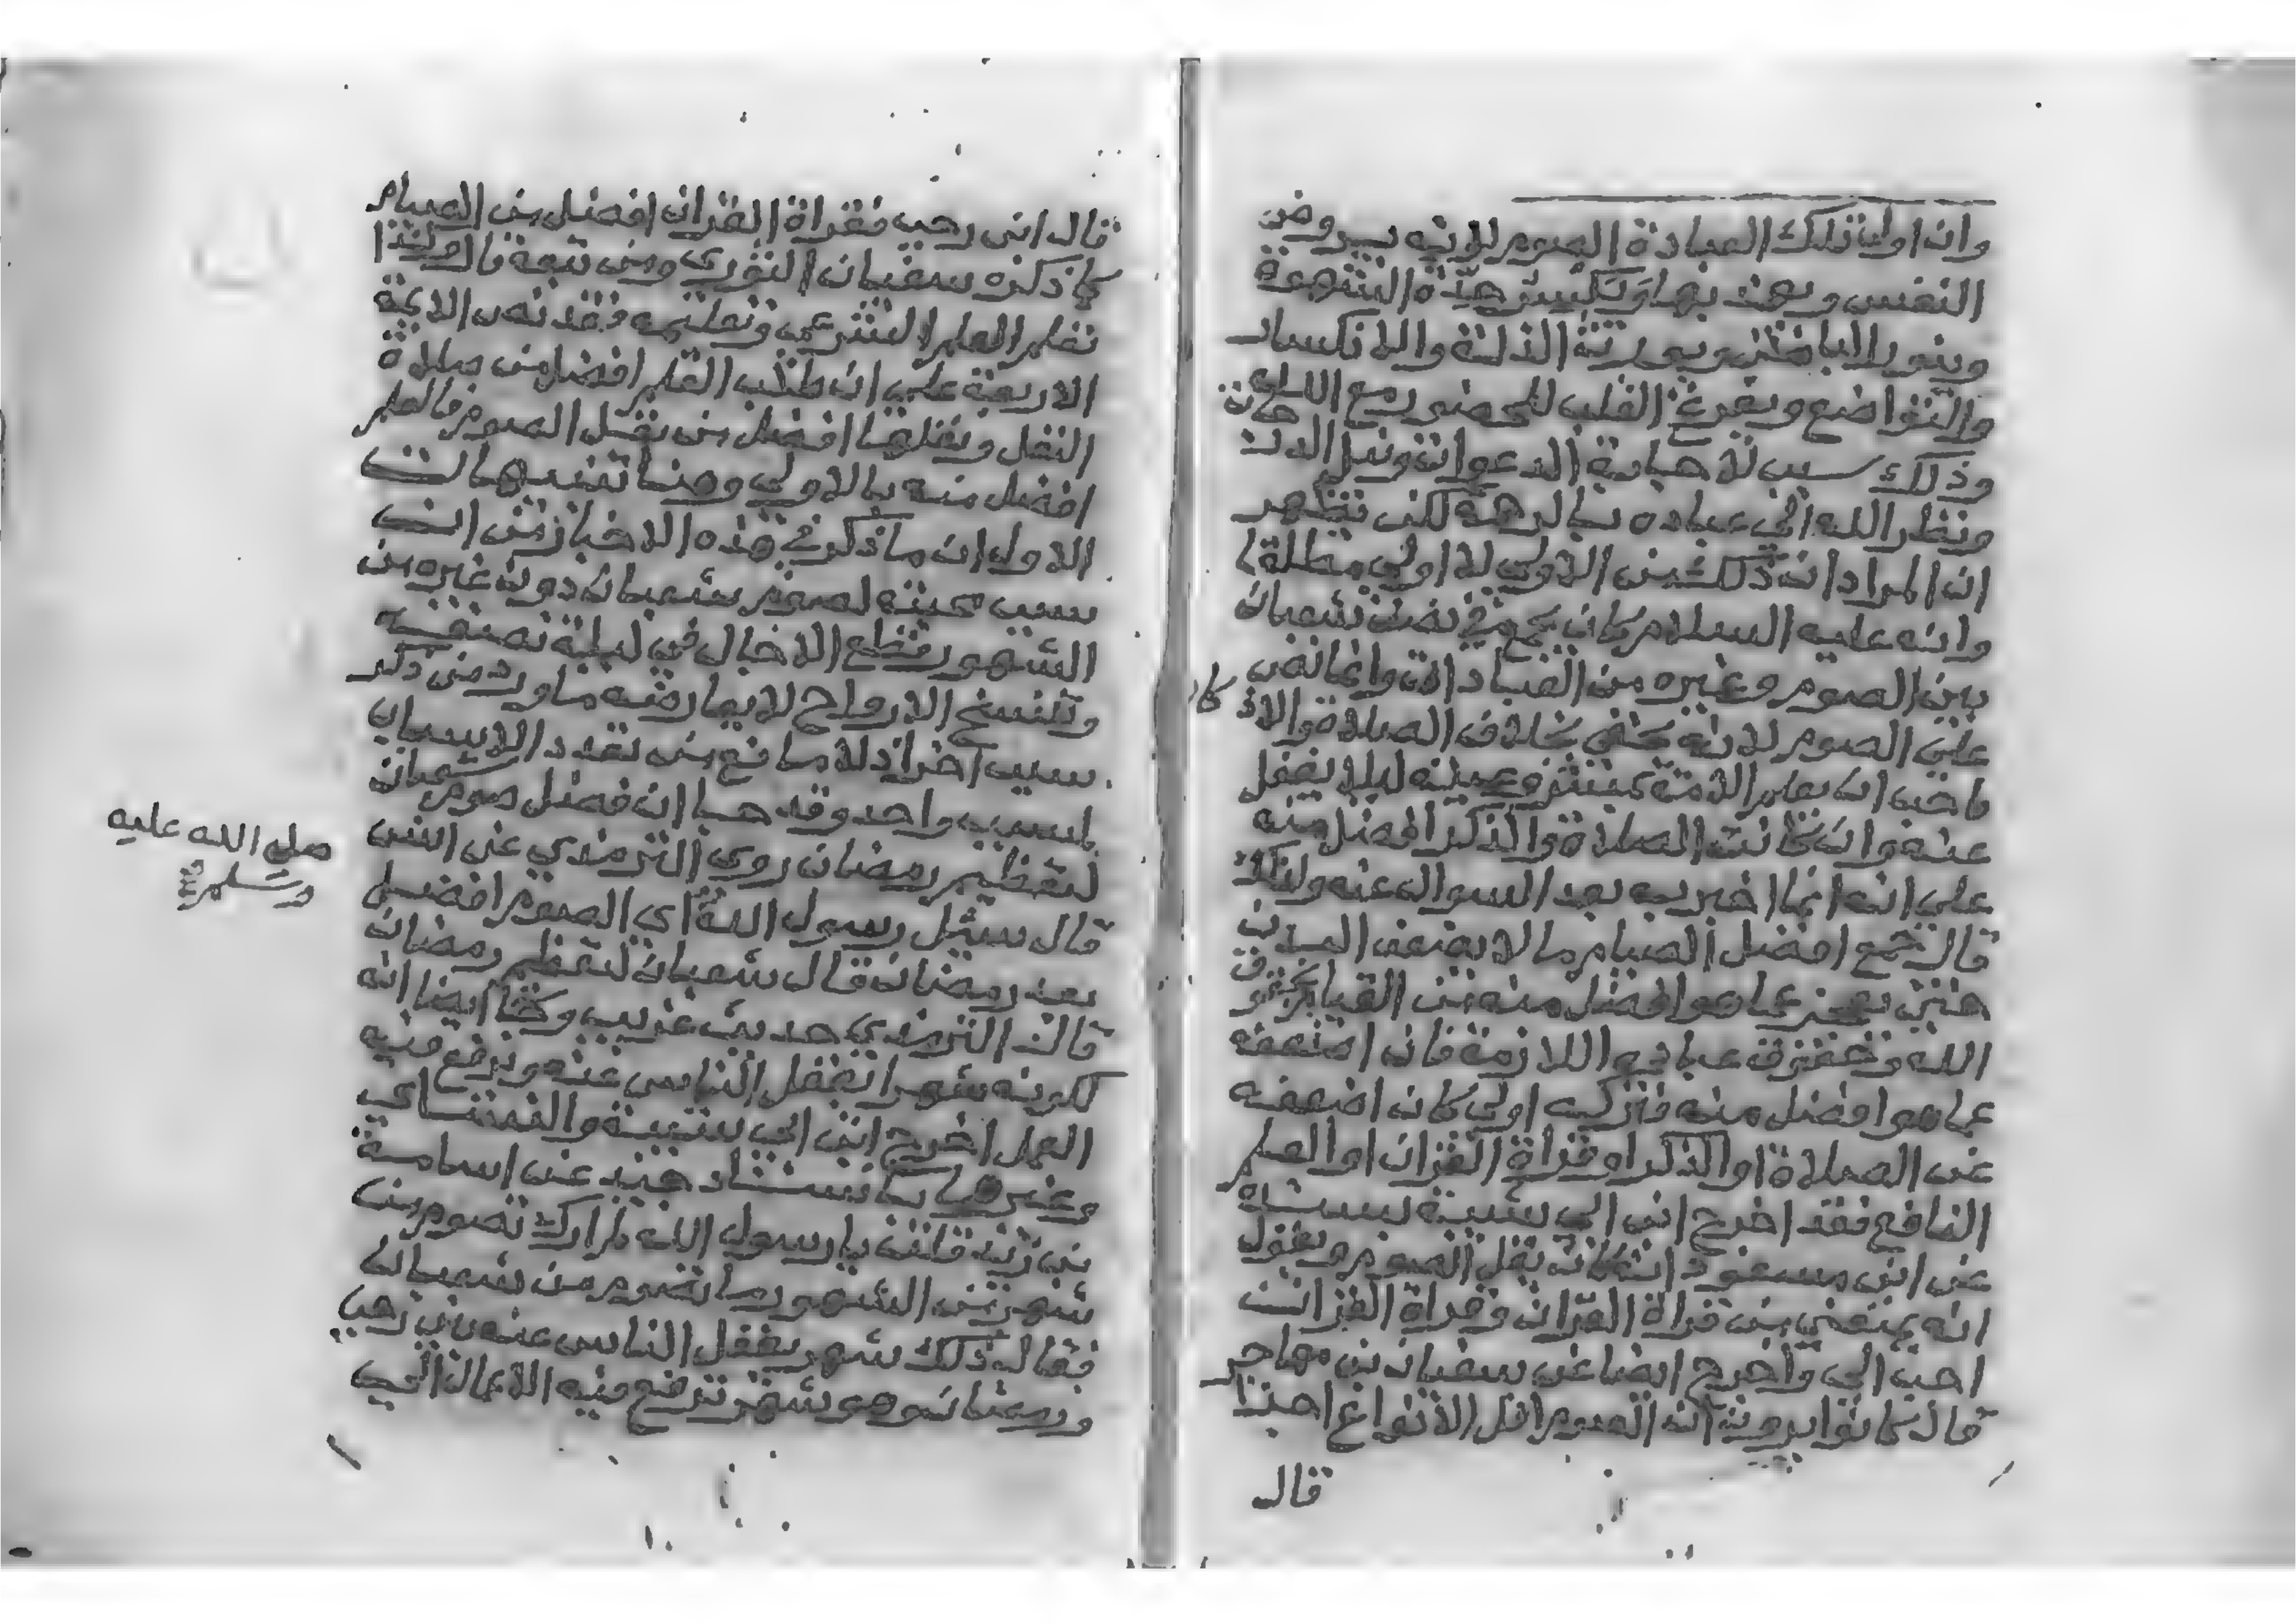 وان اولي تلك العبادة الصوم لانه يروض
النفس ويهذبها ويكسر هذه الشهوة
وينور الباطن ويورث الذلة والانكسار
والتواضع ويفرغ القلب للحضور مع الله
وذلك سبب لاجابة الدعوات ونيل
ونظر الله الي عباده بالرحمة لكن يظهر
ان المراد ان ذلك من الاولي لا اولي مطلقا
وانه عليه السلام كان يجمع في نصف شعبان
بين الصوم وغيره من العبادات وانما نص
علي الصوم لانه يخفي بخلاف الصلاة والاذ كار
فاحب ان يعلم الامة بمشروعيته ليلا يغفل
عنه وان كانت الصلاة والذكر افضل منه
علي انه انما اخبر به بعد السوال عنه ولذلك
قال جمع افضل الصيام ما لا يضعف البدن
حتي يعجز عما هو افضل منه من القيام بحقوق
الله وحقوق عباده اللازمة فان اضعفه
عما هو افضل منه فتركه اولي كان اضعفه
عن الصلاة او الذكر او قراة القران او العلم
النافع فقد اخرج ابن ابي شيبة بسنده
عن ابن مسعود انه كان يقل الصوم ويقول
انه يمنعني من قراة القران وقراة القران
احب الي واخرج ايضا عن سفيان بن مهاجر
قال كانوا يرون ان الصوم اقل الانواع اجرا
قال
قال ابن رجب فقراة القران افضل من الصيام
كما ذكره سفيان الثوري ومن تبعه قال وكذا
تعلم العلم الشرعي وتعليمه فقد نص الايمة
الاربعة علي ان طلب العلم افضل من صلاة
النفل ونفلها افضل من نفل الصوم فالعلم
افضل منه بالاولي وهنا تنبيهات
الاول ان ما ذكر في هذه الاخبار من ان
سبب محبته لصوم شعبان دون غيره من
الشهور قطع الاجال في ليلة نصفه
وتنسخ الارواح لا يعارضه ما ورد من ذكر
سبب اخر اذ لا مانع من تعدد الاسباب
لمسبب واحد وقد جا ان فضل صوم شعبان
لتعظيم رمضان روي الترمذي عن انس
قال سيل رسول الله اي الصوم افضل
صلي الله عليه
وسلم
بعد رمضان قال شعبان لتعظيم رمضان
قال الترمذي حديث غريب وجا ايضا انه
لكونه شهرا تغفل الناس عنه وترفع فيه
العمل اخرج ابن ابي شيبة والنسائي
وغيرهما باسناد جيد عن اسامة
بن زيد قلت يا رسول الله لم ارك تصوم من
شهر من الشهور ما تصوم من شعبان
فقال ذلك شهر يغفل الناس عنه بين رجب
ورمضان وهو شهر ترفع فيه الاعمال الي